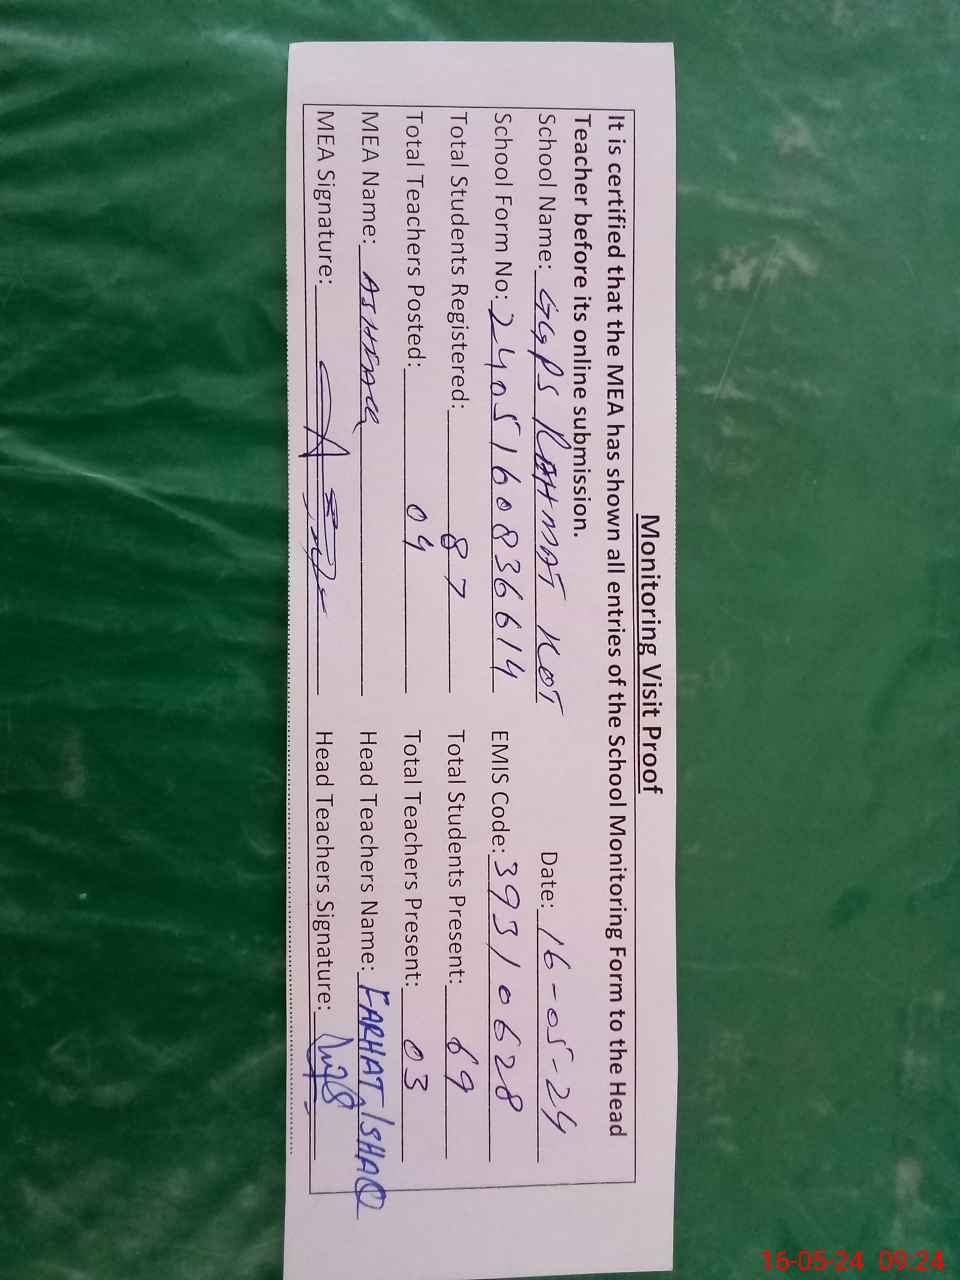 Monitoring Visit Proof
It is certified that the MEA has shown all entries of the School Monitoring Form to the Head
Teacher before its online submission.
School Name: GGPS RAHMAT KOT Date: 16-05-24
School Form No: 2405160836614 EMIS Code: 39310628
Total Students Registered: 87 Total Students Present: 69
Total Teachers Posted: 04 Total Teachers Present: 03
MEA Name: ASHFAQ Head Teachers Name: FARHAT ISHAQ
MEA Signature: Head Teachers Signature:
16-05-24 09:24